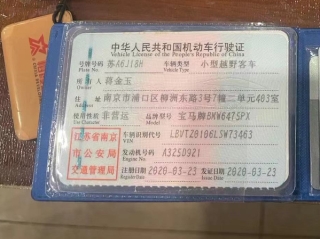 中华人民共和国机动车行驶证
Vehicle License of the People's Republic of China
号牌号码 苏A6J18H 车辆类型 小型越野客车
Plate No. Vehicle Type
所有人 蒋金玉
Owner
住址 南京市浦口区柳洲东路3号7幢二单元403室
Address
使用性质 非营运 品牌型号 宝马牌BMW6475PX
Use Character Model
江苏省南京 车辆识别代号 LBVTZ0106LSW73463
VIN
市公安局 发动机号码 A3250921
Engine No.
交通管理局 注册日期 2020-03-23 发证日期 2020-03-23
Register Date Issue Date